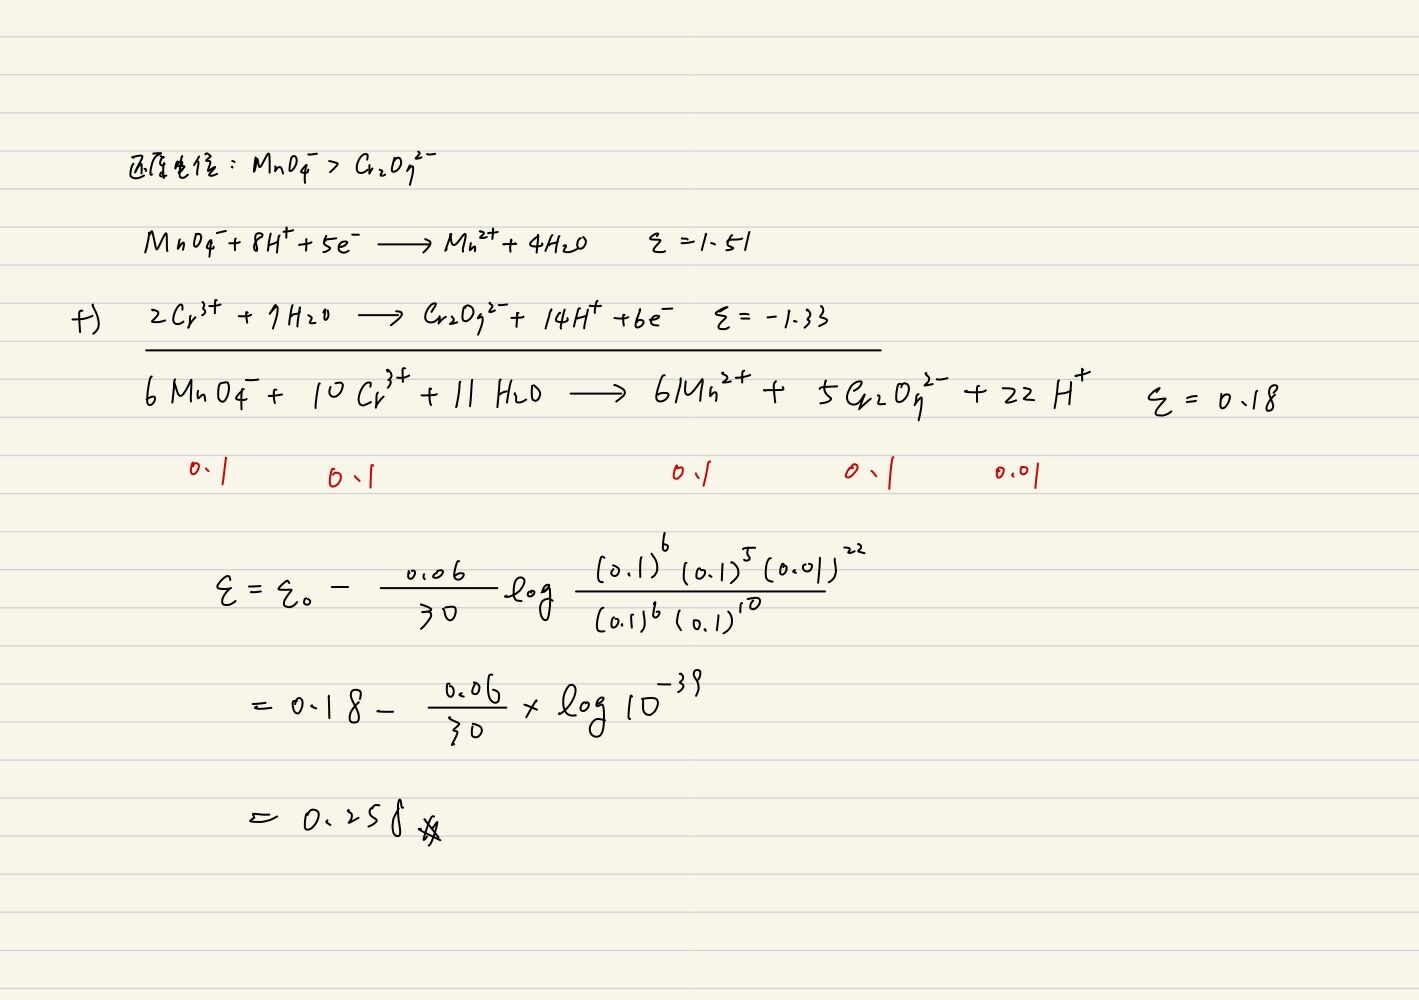 还原电位：MnO₄⁻ > Cr₂O₇²⁻
MnO₄⁻ + 8H⁺ + 5e⁻ ⟶ Mn²⁺ + 4H₂O ε = 1.51
+) 2Cr³⁺ + 7H₂O ⟶ Cr₂O₇²⁻ + 14H⁺ + 6e⁻ ε = -1.33
6MnO₄⁻ + 10Cr³⁺ + 11H₂O ⟶ 6Mn²⁺ + 5Cr₂O₇²⁻ + 22H⁺ ε = 0.18
0.1 0.1 0.1 0.1 0.01
ε = ε₀ - 0.06/30 log (0.1)⁶(0.1)⁵(0.01)²²/(0.1)⁶(0.1)¹⁰
= 0.18 - 0.06/30 × log 10⁻³⁹
= 0.258